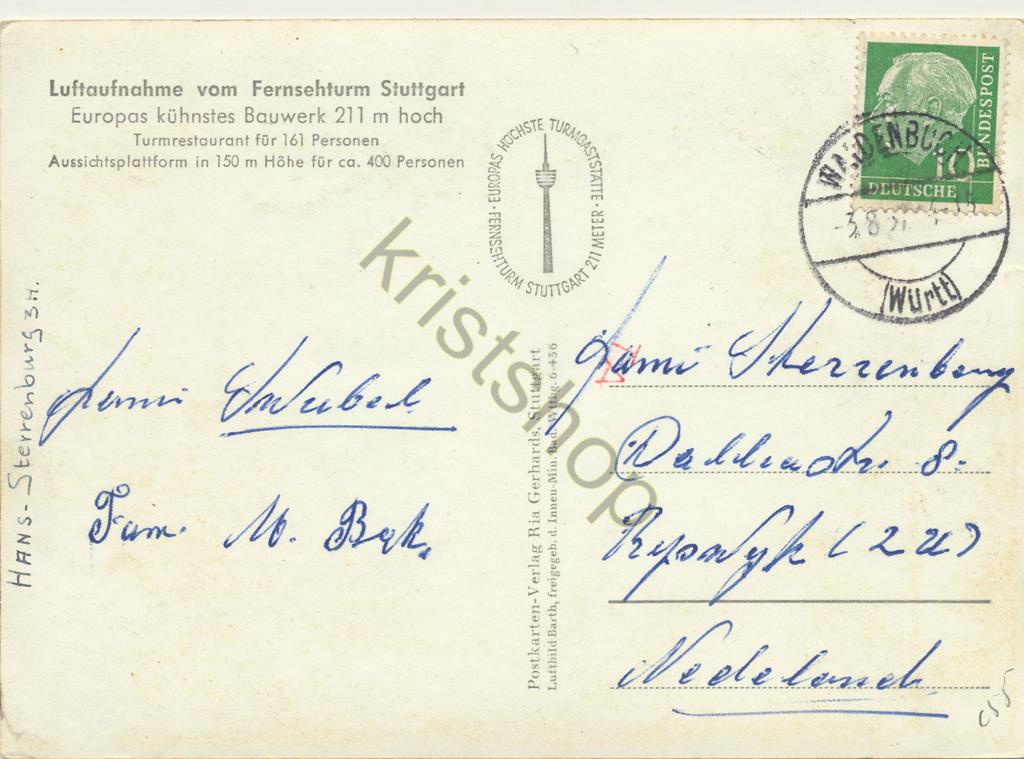 Luftaufnahme vom Fernsehturm Stuttgart
Europas kühnstes Bauwerk 211 m hoch
Turmrestaurant für 161 Personen
Aussichtsplattform in 150 m Höhe für ca. 400 Personen
FERNSEHTURM STUTTGART 211 METER · EUROPAS HÖCHSTE TURMGASTSTÄTTE ·
BUNDESPOST
10
DEUTSCHE
WALDENBUCH
-3.8.57
(Württ)
HANS-Sterrenburg 3H.
Fam.
Fam. M. Bak.
Postkarten-Verlag Ria Gerhards, Stuttgart
Luftbild Barth, freigegeb. d. Innen-Min. Bad. Wttbg. 6-436
Fami Sterrenburg
8.
Ryswyk (ZH)
Nedeland
kristshop